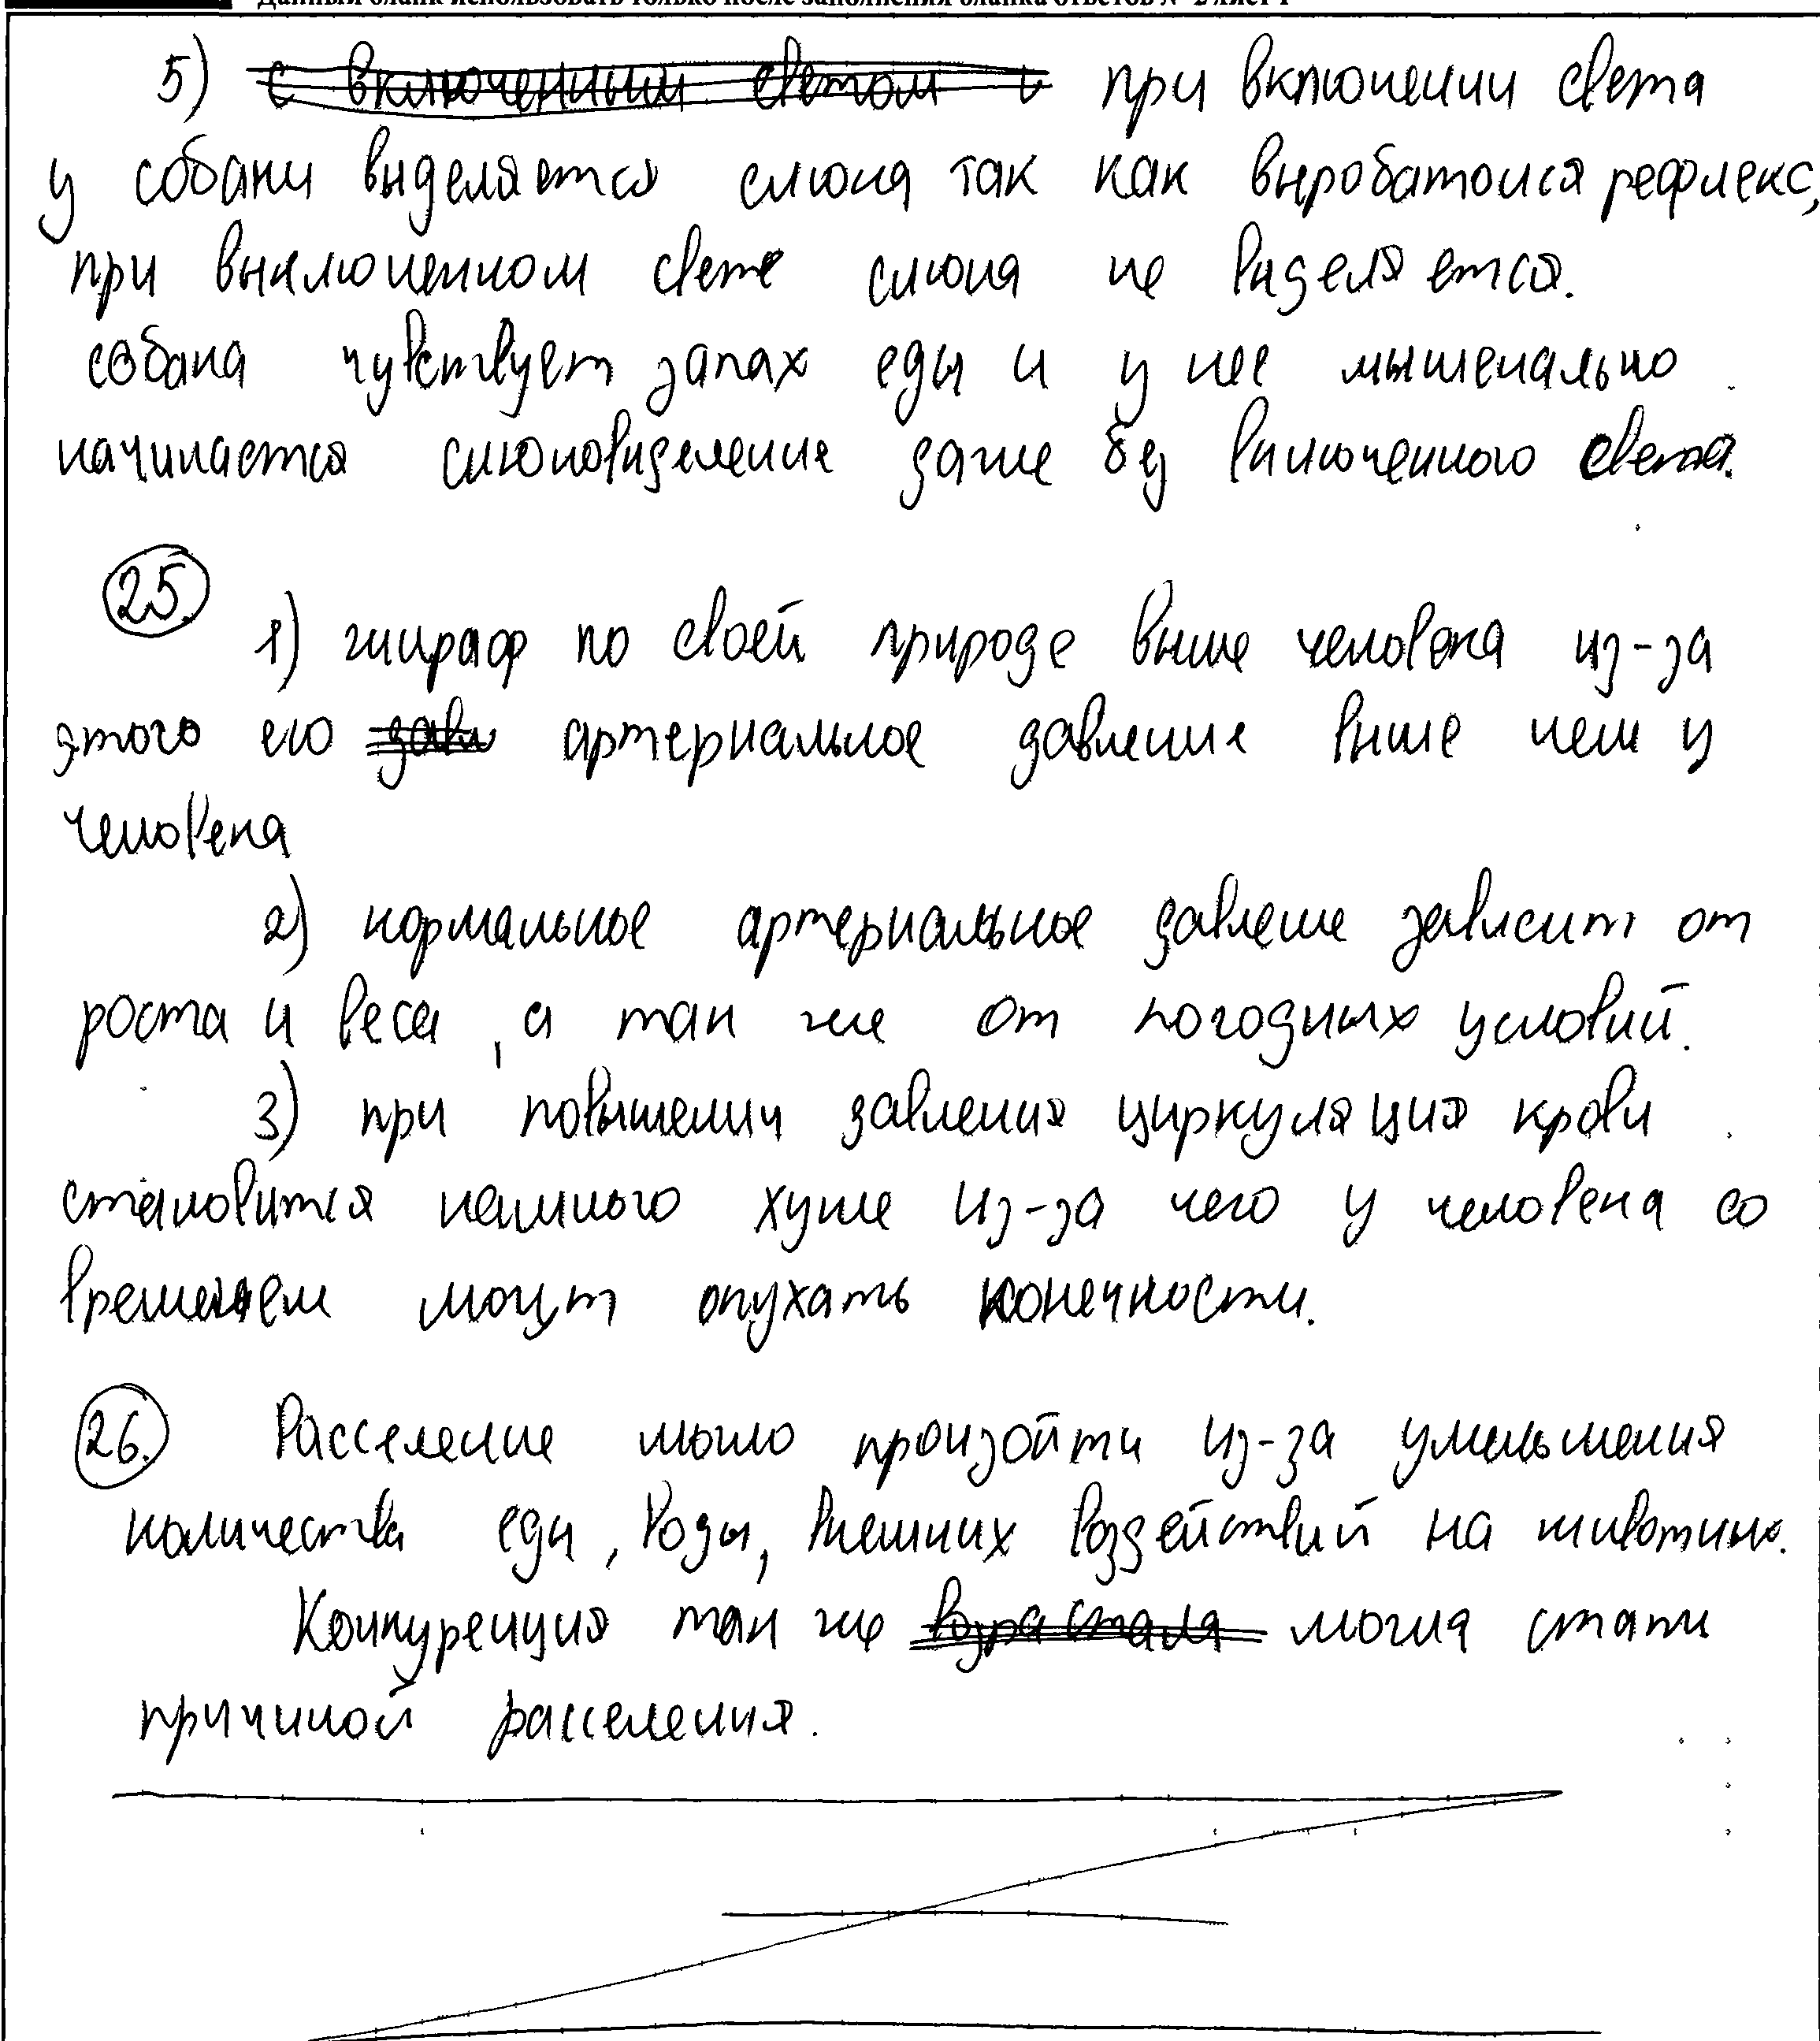 Данный бланк использовать только после заполнения бланка ответов № 2 лист 1
5) с включенным светом и при включении света
у собаки выделяется слюна так как выробатолся рефлекс,
при выключенном свете слюна не виделяется.
собака чувствует запах еды и у нее мышенально
начинается слюновиделение даже без включенного света.
25.
1) жираф по своей природе выше человека из-за
этого его давл артериальное давление выше чем у
человека
2) нормальное артериальное давлеие зависит от
роста и веса, а так же от погодных условий.
3) при повышении давления циркуляция крови
становится намного хуже из-за чего у человека со
временем могут опухать конечности.
26. Расселение могло произойти из-за уменьшения
количества еды, воды, внешних воздействий на животных.
Конкуренция так же возрастала могла стать
причиной расселения.